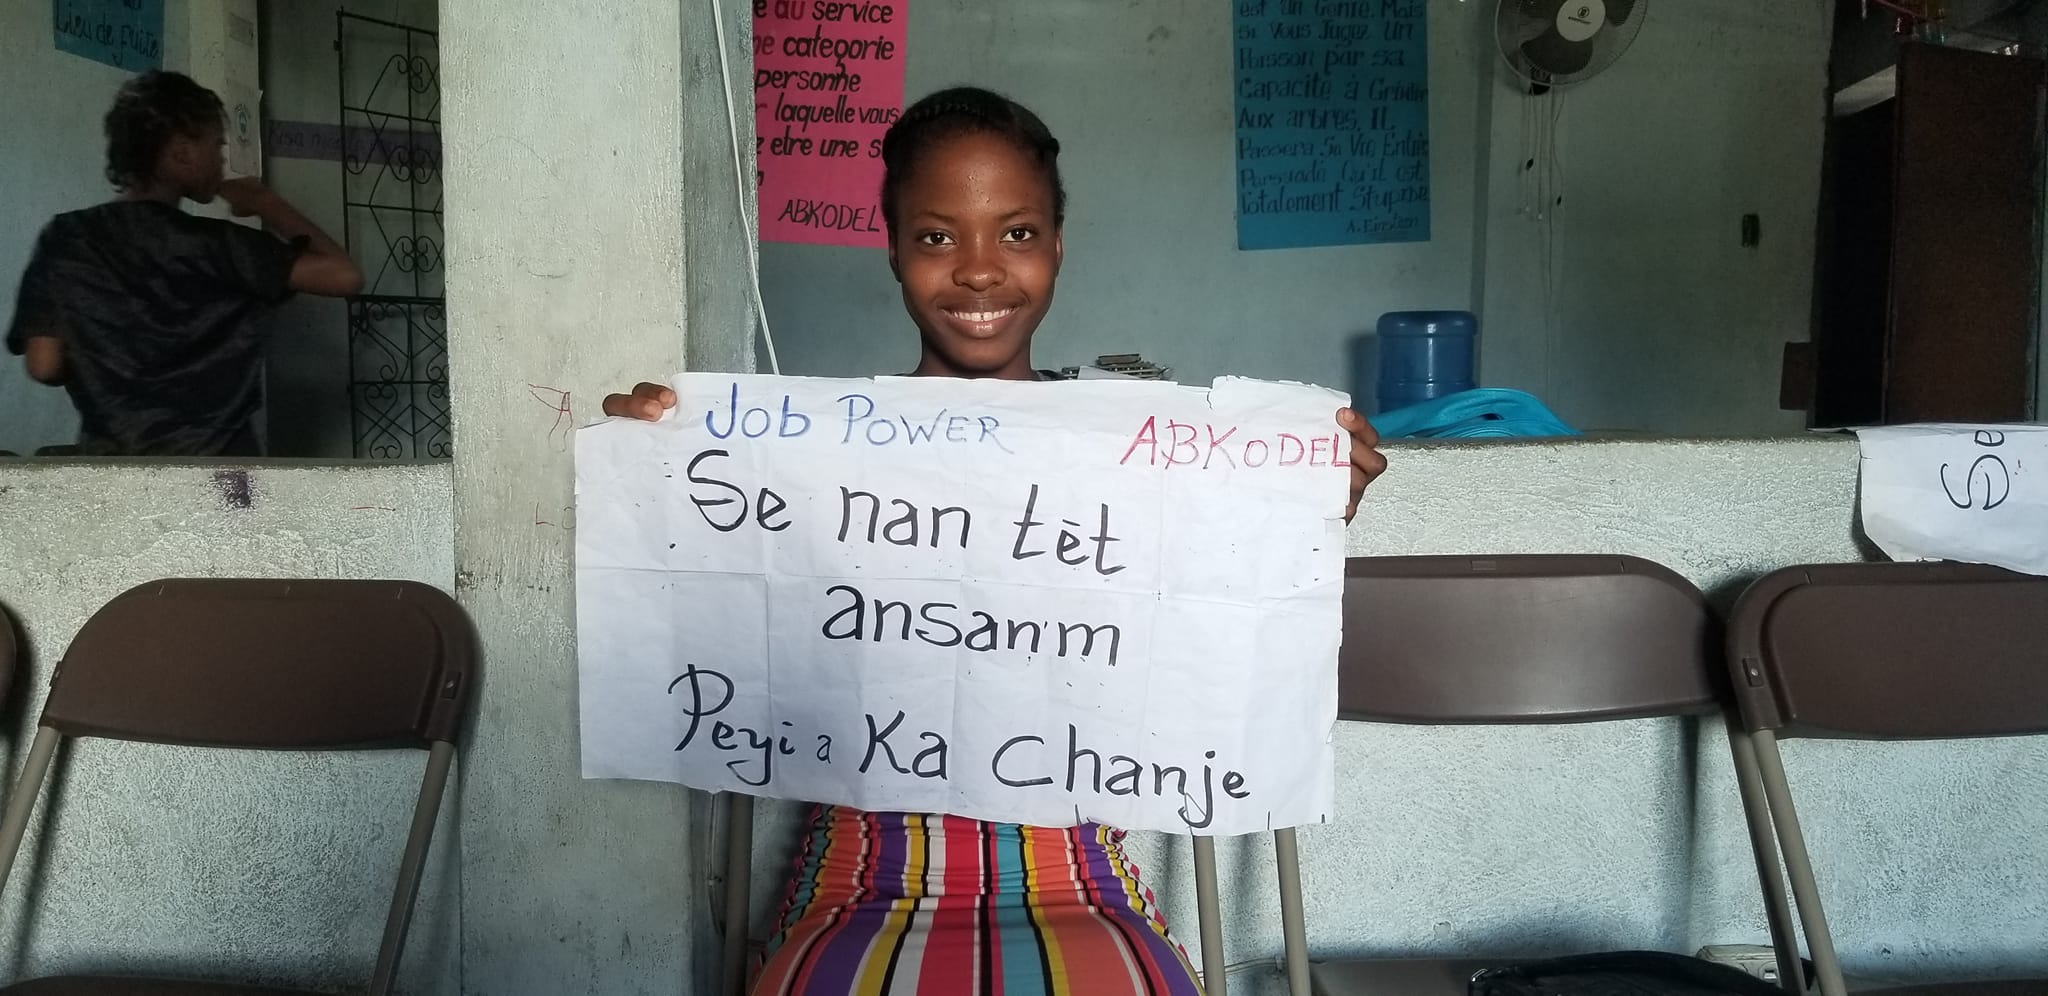 Lieu de fuite
e au service
ne categorie
personne
r laquelle vous
z etre une s
ABKODEL
est un Genie. Mais
Si Vous Jugez Un
Poisson par sa
Capacité à Grimper
Aux arbres, IL
Passera Sa Vie Entière
Persuadé Qu'il est
Totalement Stupide
A. Einstein
Job POWER
ABKODEL
Se nan tèt
ansan'm
Peyi a Ka Chanje
Se